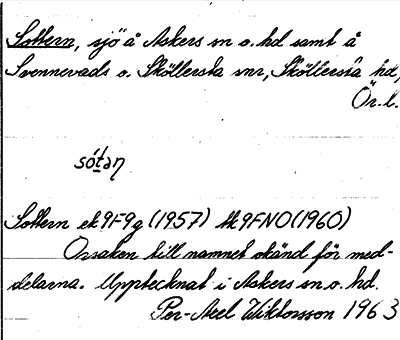 Sottern, sjö å Askers sn o. hd samt å
Svennevads o. Sköllersta snr, Sköllersta hd,
Ör. l.
sótəƞ
Sottern ek 9F9g (1957) tk 9FNO (1960)
Orsaken till namnet okänd för med-
delarna. Upptecknat i Askers sn o. hd.
Per-Axel Wiktorsson 1963